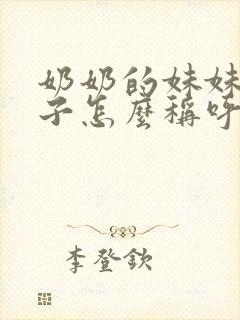 奶奶的妹妹
子怎麼稱呼
李登欽